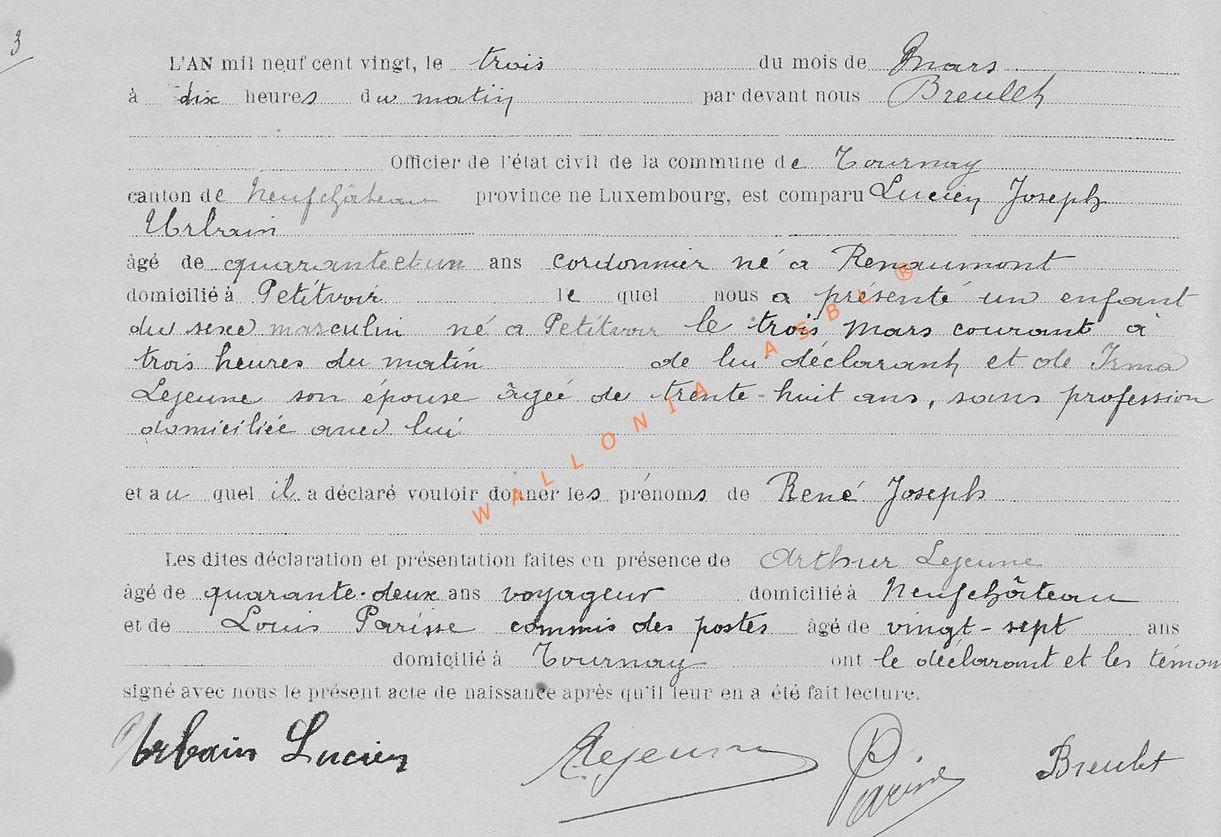 3
L'AN mil neuf cent vingt, le trois du mois de Mars
à dix heures du matin par devant nous Breulet
Officier de l'état civil de la commune de Tournay
canton de Neufchâteau province ne Luxembourg, est comparu Lucien Joseph
Urbain
âgé de quarante et un ans cordonnier né a Renaumont
domicilié à Petitvoir le quel nous a présenté un enfant
du sexe masculin né a Petitvoir le trois Mars courant à
trois heures du matin de lui déclarant et de Irma
Lejeune son épouse âgée de trente-huit ans, sans profession
domiciliée avec lui
et au quel il a déclaré vouloir donner les prénoms de René Joseph
Les dites déclaration et présentation faites en présence de Arthur Lejeune
âgé de quarante-deux ans voyageur domicilié à Neufchâteau
et de Louis Parisse commis des postes âgé de vingt-sept ans
domicilié à Tournay ont le déclarant et les témoin
signé avec nous le présent acte de naissance après qu'il leur en a été fait lecture.
Urbain Lucien ALejeune Parisse Breulet
WALLONIA ASBL ®